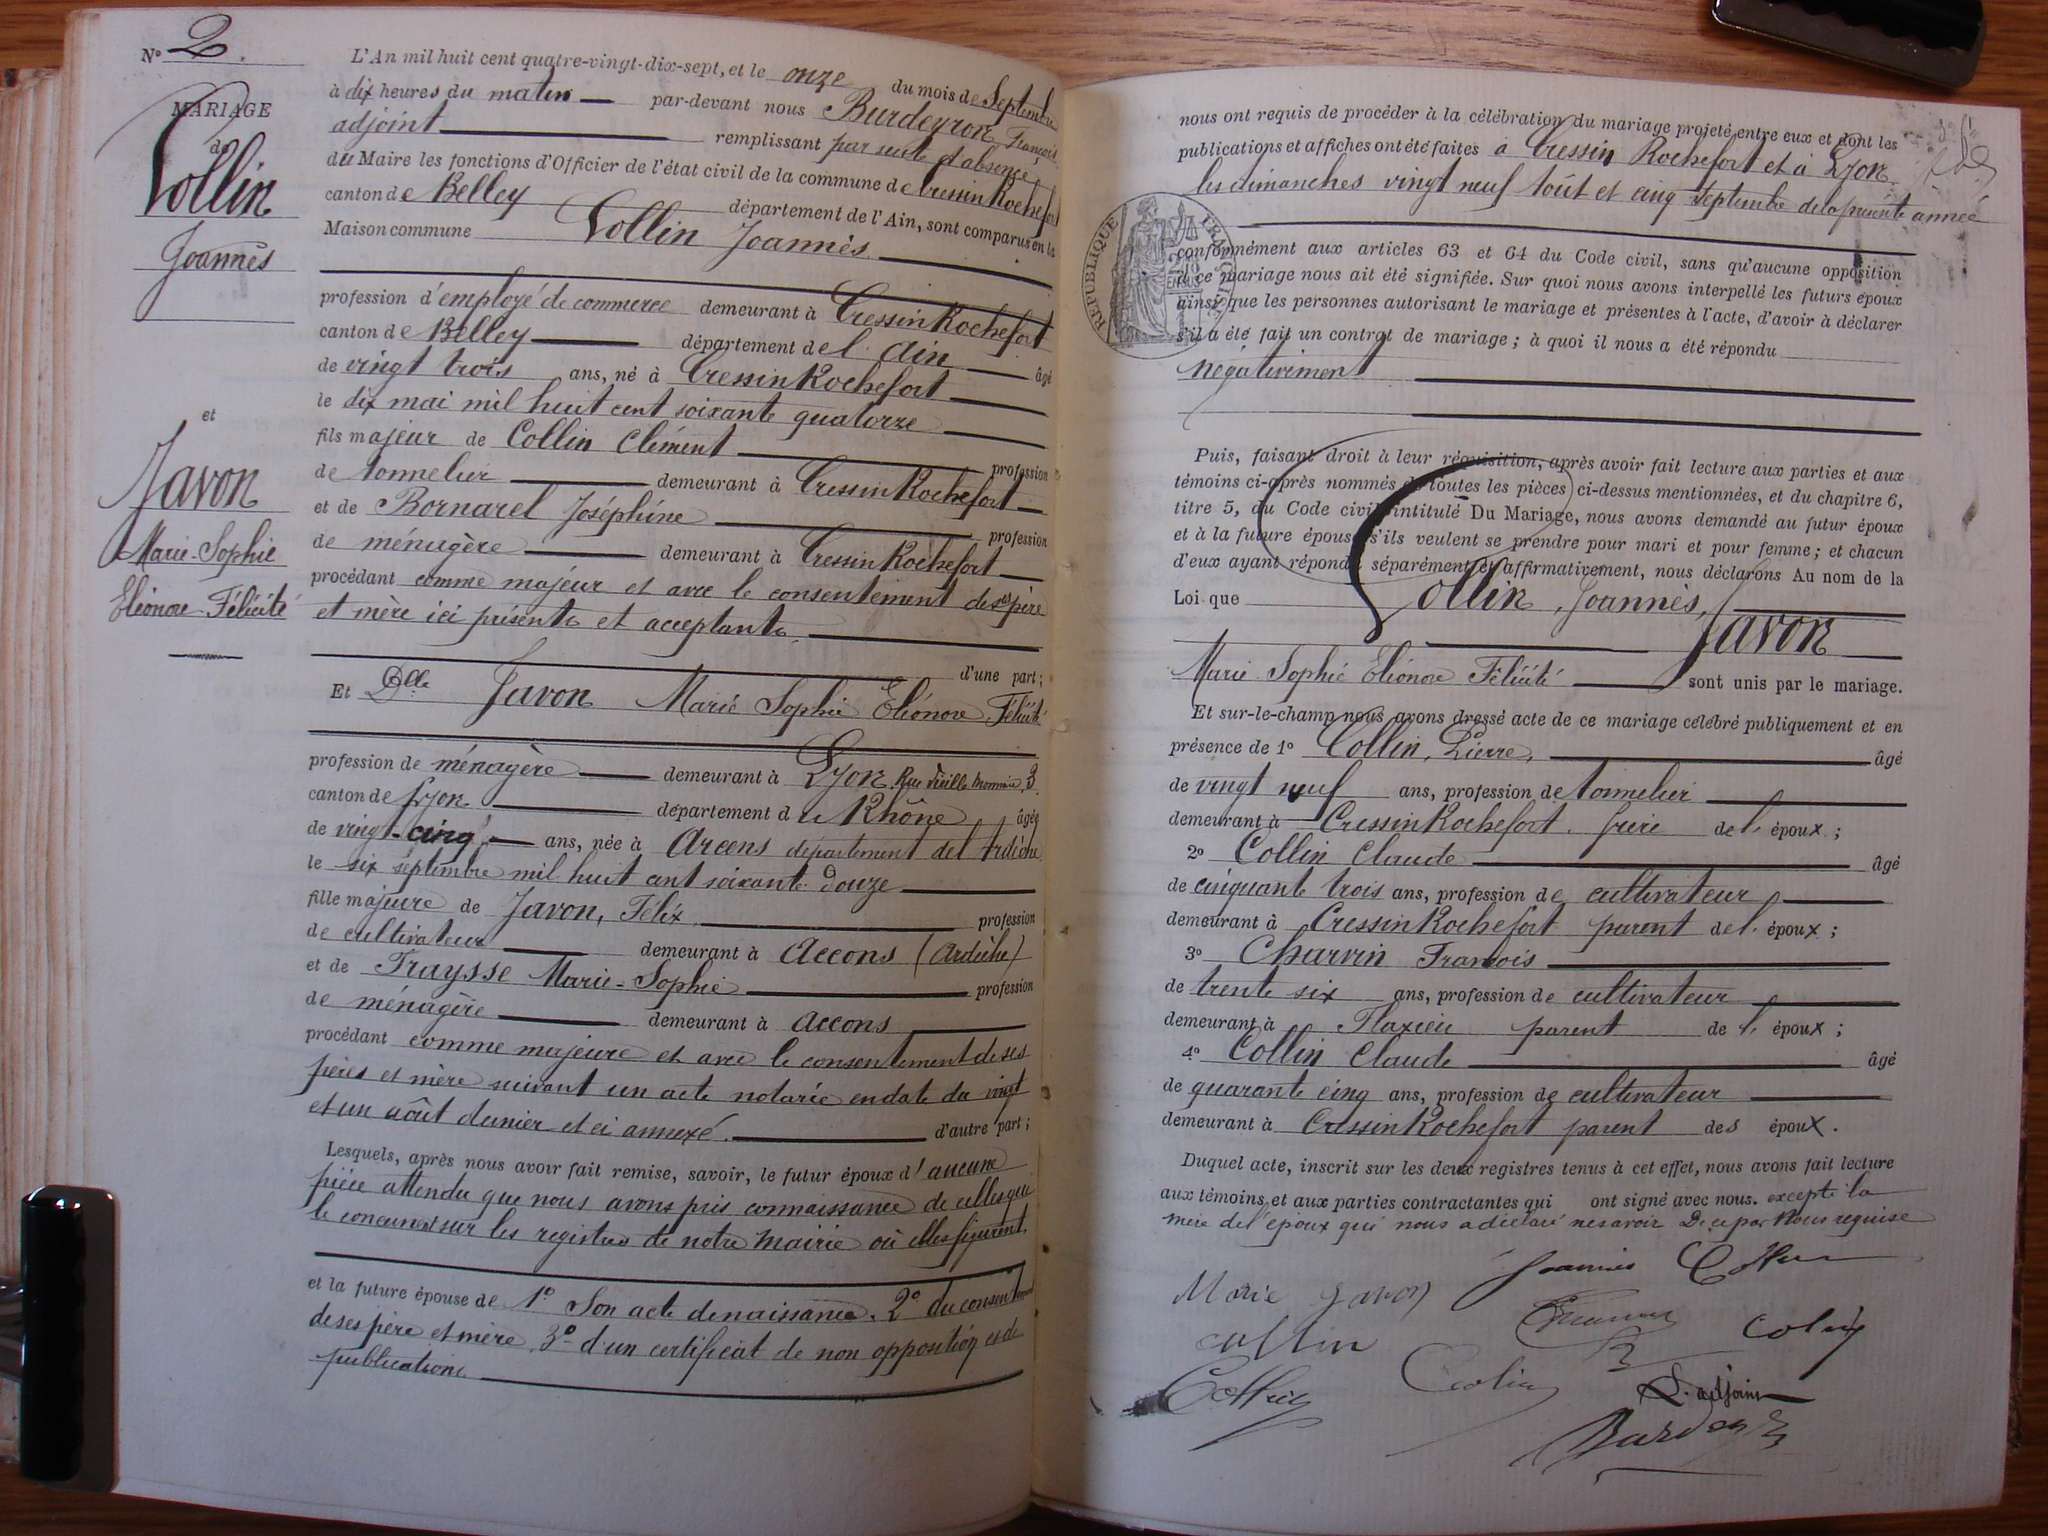 N° 2.
MARIAGE
de
Collin
Joannès
et
Javon
Marie-Sophie
Eléonore Félicité
L'An mil huit cent quatre-vingt-dix-sept, et le onze du mois de Septembre
à dix heures du matin par-devant nous Burdeyron, François
adjoint remplissant par suite d'absence
du Maire les fonctions d'Officier de l'état civil de la commune de Cressin Rochefort
canton de Belley département de l'Ain, sont comparus en la
Maison commune Collin Joannès
profession d'employé de commerce demeurant à Cressin Rochefort
canton de Belley département de l'Ain âgé
de vingt trois ans, né à Cressin Rochefort
le dix mai mil huit cent soixante quatorze
fils majeur de Collin Clément profession
de tonnelier demeurant à Cressin Rochefort
et de Bornarel Joséphine profession
de ménagère demeurant à Cressin Rochefort
procédant comme majeur et avec le consentement de ses père
et mère ici présents et acceptants
d'une part;
Et Dlle Javon Marie Sophie Eléonore Félicité
profession de ménagère demeurant à Lyon, Rue Vieille Monnaie, 3.
canton de Lyon département du Rhône âgée
de vingt-cinq ans, née à Arcens département de l'Ardèche
le six septembre mil huit cent soixante douze
fille majeure de Javon, Félix profession
de cultivateur demeurant à Accons (Ardèche)
et de Fraysse Marie-Sophie profession
de ménagère demeurant à Accons
procédant comme majeure et avec le consentement de ses
pères et mère suivant un acte notarié en date du vingt
et un août dernier et ci annexé. d'autre part;
Lesquels, après nous avoir fait remise, savoir, le futur époux d'aucune
pièce attendu que nous avons pris connaissance de celles que
le concernent sur les registres de notre mairie où elles figurent.
et la future épouse de 1° Son acte de naissance, 2° du consentement
de ses père et mère, 3° d'un certificat de non opposition et de
publication.
nous ont requis de procéder à la célébration du mariage projeté entre eux et dont les
publications et affiches ont été faites à Cressin Rochefort et à Lyon
les dimanches vingt neuf Août et cinq Septembre de la présente année
REPUBLIQUE FRANÇAISE
conformément aux articles 63 et 64 du Code civil, sans qu'aucune opposition
à ce mariage nous ait été signifiée. Sur quoi nous avons interpellé les futurs époux
ainsi que les personnes autorisant le mariage et présentes à l'acte, d'avoir à déclarer
s'il a été fait un contrat de mariage; à quoi il nous a été répondu
négativement
Puis, faisant droit à leur réquisition, après avoir fait lecture aux parties et aux
témoins ci-après nommés de toutes les pièces ci-dessus mentionnées, et du chapitre 6,
titre 5, du Code civil intitulé Du Mariage, nous avons demandé au futur époux
et à la future épouse s'ils veulent se prendre pour mari et pour femme; et chacun
d'eux ayant répondu séparément et affirmativement, nous déclarons Au nom de la
Loi que Collin, Joannès,
Javon
Marie Sophie Eléonore Félicité sont unis par le mariage.
Et sur-le-champ nous avons dressé acte de ce mariage célébré publiquement et en
présence de 1° Collin, Pierre, âgé
de vingt neuf ans, profession de tonnelier
demeurant à Cressin Rochefort frère de l'époux;
2° Collin Claude âgé
de cinquante trois ans, profession de cultivateur
demeurant à Cressin Rochefort parent de l'époux;
3° Charvin François
de trente six ans, profession de cultivateur
demeurant à Flaxieu parent de l'époux;
4° Collin Claude âgé
de quarante cinq ans, profession de cultivateur
demeurant à Cressin Rochefort parent des époux.
Duquel acte, inscrit sur les deux registres tenus à cet effet, nous avons fait lecture
aux témoins et aux parties contractantes qui ont signé avec nous. excepté la
mère de l'époux qui nous a déclaré ne savoir De ce par Nous requise
Marie Javon Joannès Collin
collin
Collin
L'adjoint